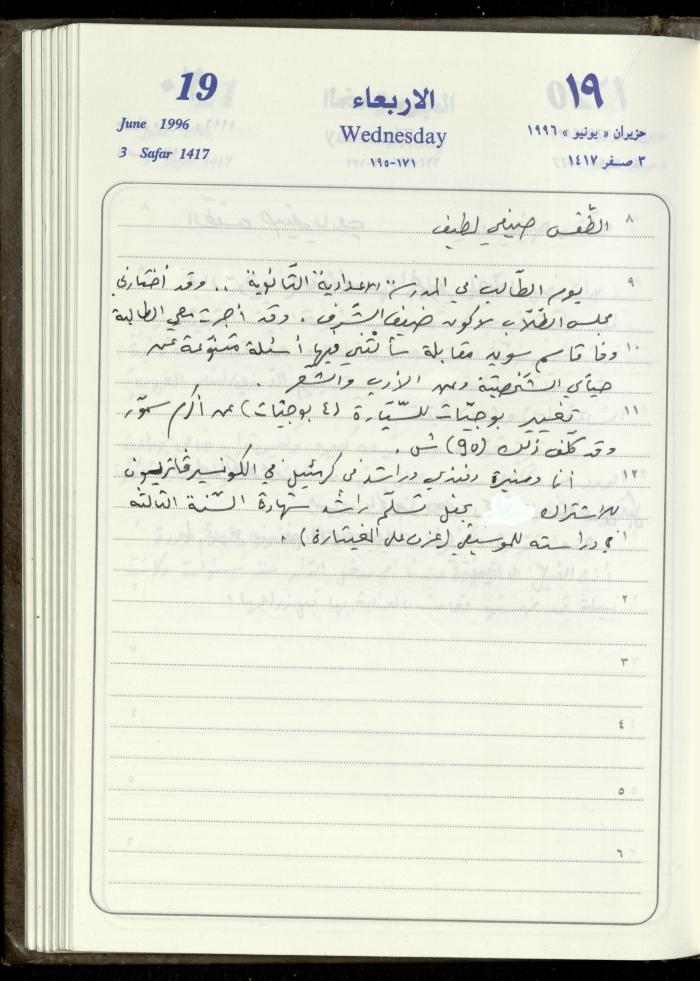 19
June 1996
3 Safar 1417
الاربعاء
Wednesday
١٩٥-١٧١
١٩
حزيران « يونيو » ١٩٩٦
٣ صفر ١٤١٧
٨ الطّقس صيفي لطيف
٩ يوم الطّالب في المدرسة الاعدادية الثّانويّة .. وقد اختارني
مجلس الطّلّاب لأكون ضيف الشّرف . وقد أجرت معي الطالبة
١٠ وفا قاسم سويد مقابلة سألتني فيها أسئلة متنوّعة عن
حياتي الشّخصيّة وعن الأدب والشّعر .
١١ تغيير بوجيّات للسّيّارة (٤ بوجيّات) عن أكرم سمّور
وقد كلّف ذلك (٩٥) ش .
١٢ أنا ومنيرة وفوزي وراشد في كرمئيل في الكونسيرفاتريون
للاشتراك بحفل تسلّم راشد شهادة السّنة الثالثة
١ في دراسته للموسيقى (عزف على الغيتارة) .
٢
٣
٤
٥
٦